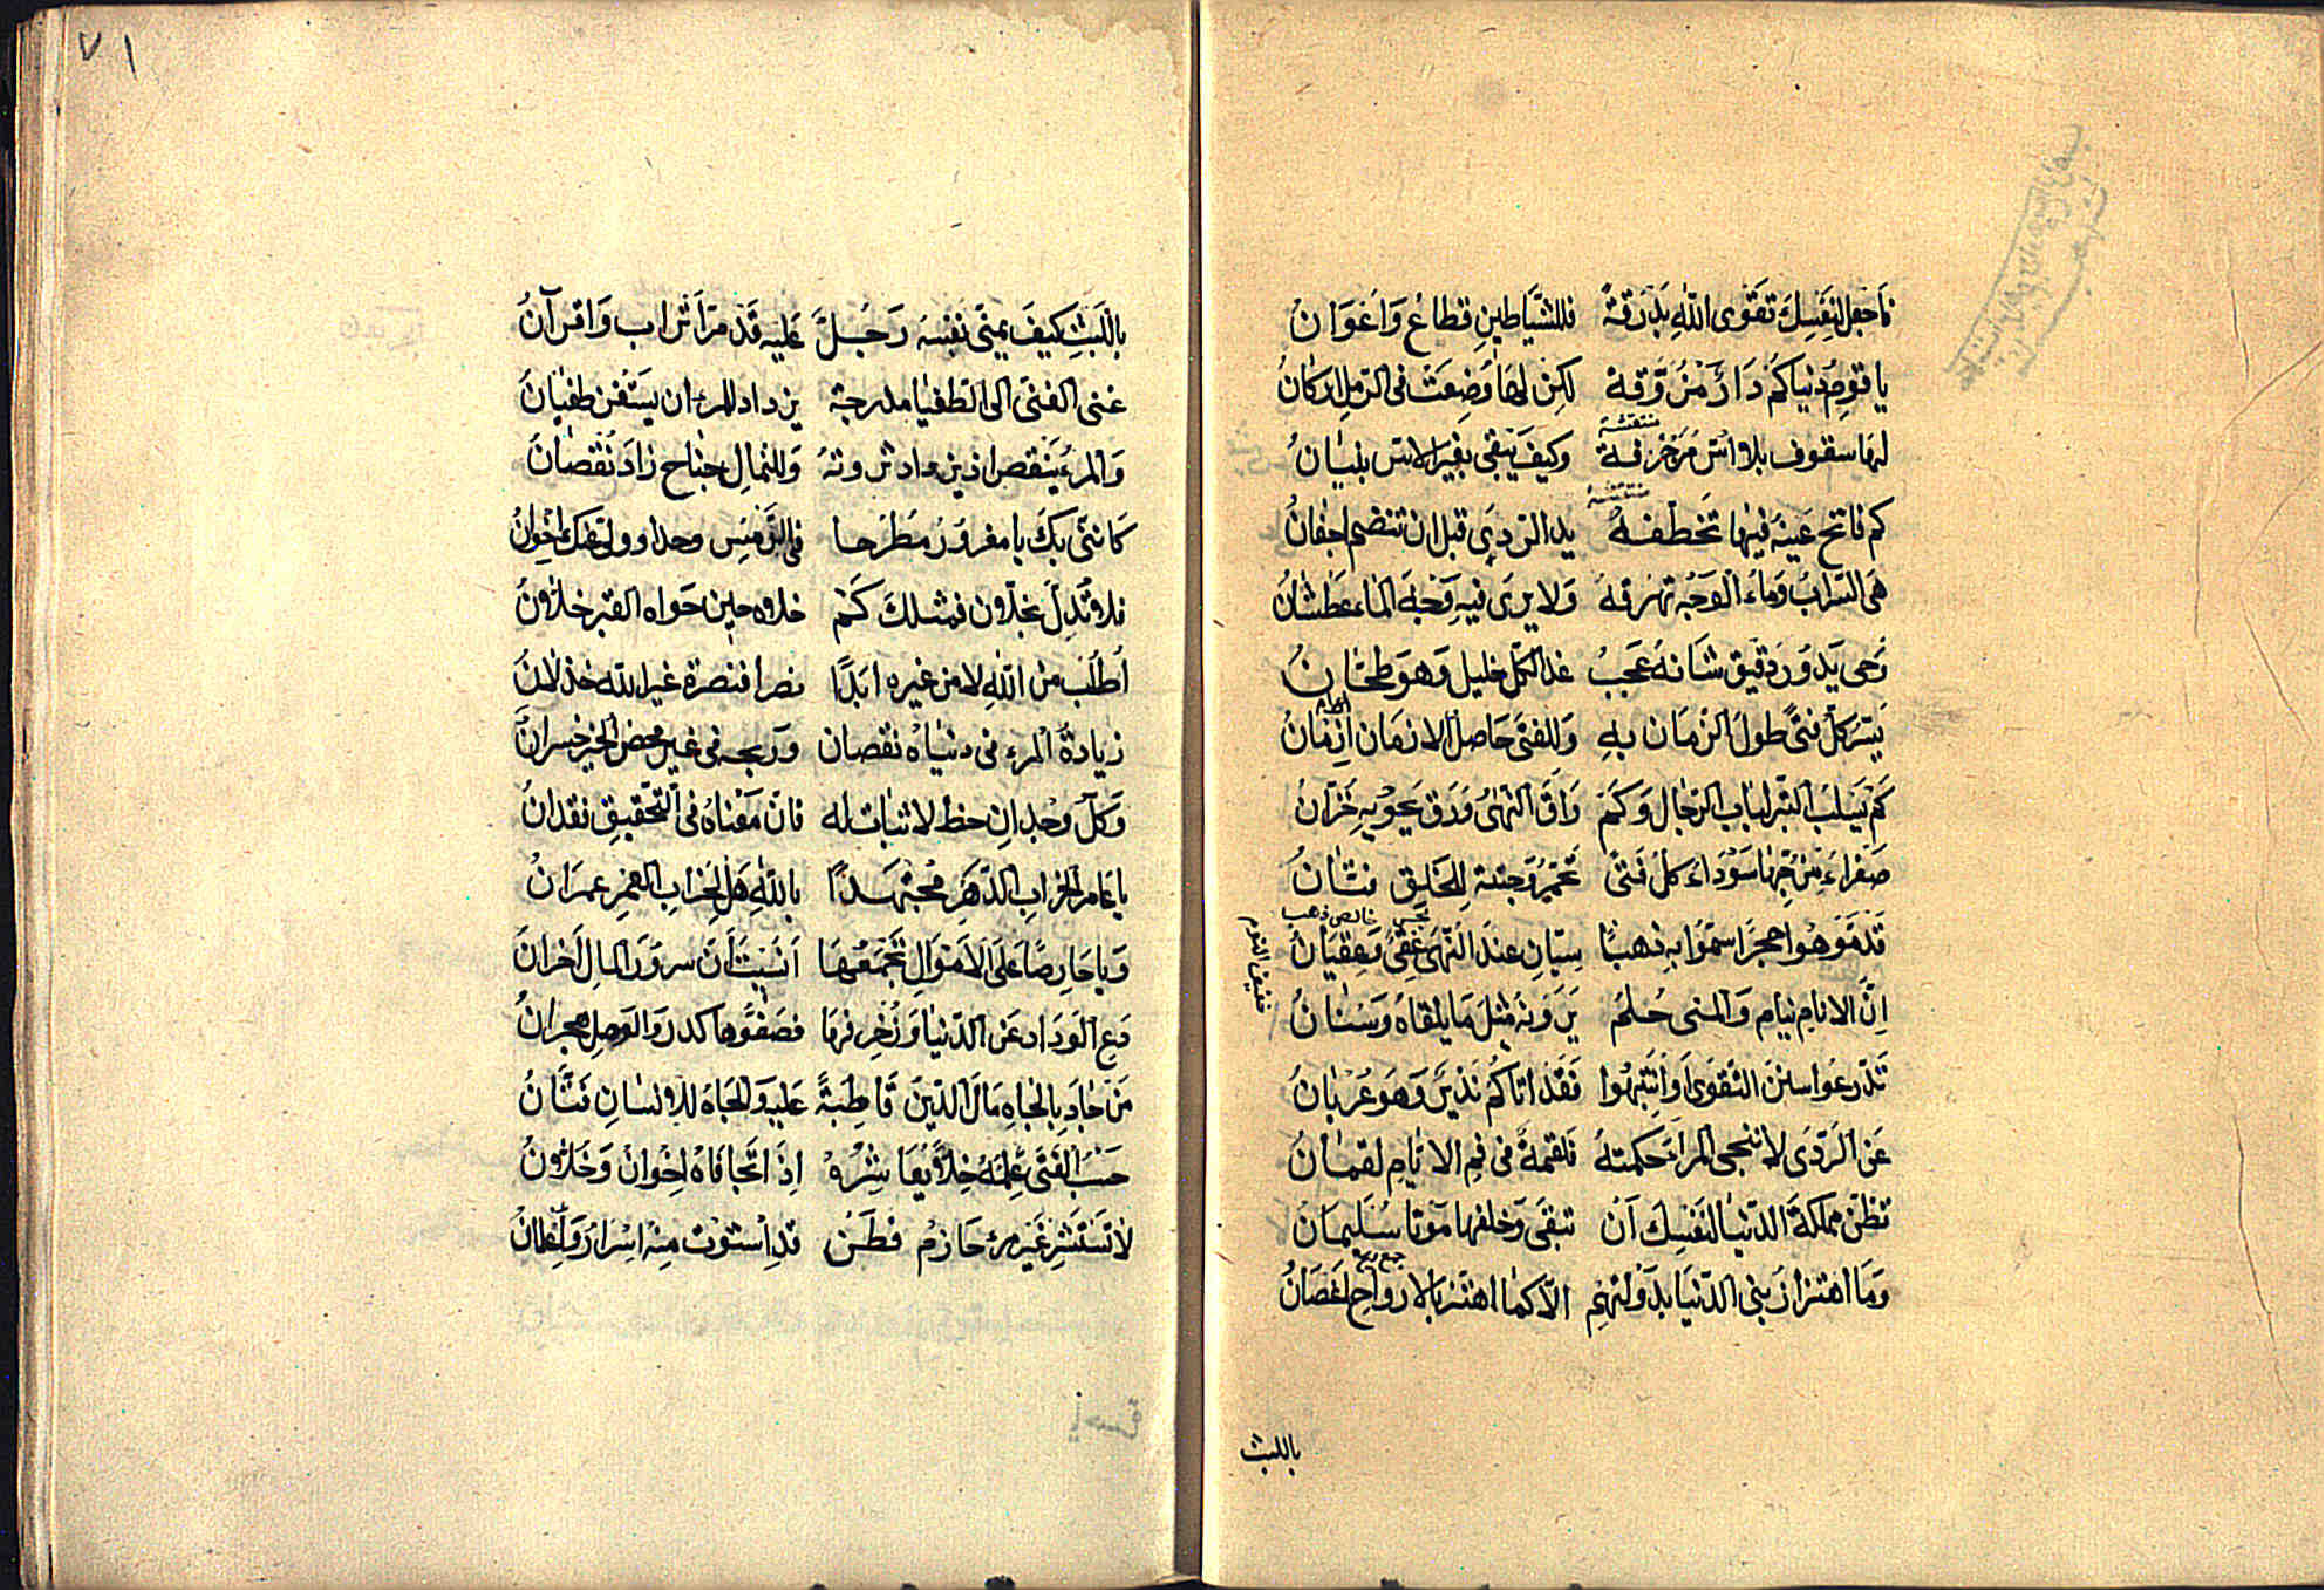 فَاجْعَل لِنَفْسِكَ تَقْوَى اللّٰهِ بَذْرَقَةً فللشَّيَاطينِ قطاعٌ وَاَعْوَانُ
يا قومِ دُنياكُم دَارٌ مُزَوَّقة لكِن لهَا وُضِعَتْ فى الرّملِ اركانُ
لهَا سقوف بلا اُسّ مُزَخْرَفة وكيفَ يَبْقى بغيرِ الاسّ بنيَانُ
منقشة
كم فاتح عَينهُ فيهَا تخَطّفهُ يد الرّدى قبل ان تنضم اجفانُ
هىَ السّرابُ وَمَاء الوَجْه تهرقهُ وَلا يرى فيهِ وَجْهَ الماءِ عَطشانُ
رَحى يَدُورُ دَقيق شَانهُ عَجَبُ غدا لكلّ خليل وَهوَ طحّانُ
يَسُرّ كلَّ فتًى طولُ الزّمَان بهِ وَللفتَى حَاصل الازمَان اَزمَانُ
كَمْ يَسلبُ التّبر الباب الرّجال وَكَمْ
صَفراءُ مِنْ حُبّهَا سَوْدَاء كلّ فتًى تحْمرّ وَجنتهُ للخلقِ فتّانُ
قَد مَوَّهُوا حجرًا سمّوا بهِ ذهبًا سِيّانِ عندَ النُّهى وَعِقيَانُ
خالص ذهب
خفيف النوم
اِنَّ الانامَ نيام وَالمنى حُلمُ يَرَوْنهُ مثلَ مَا يلقاهُ وَسْنانُ
تَدَرّعُوا سننَ التّقوَى وَانتبهُوا فَقَدْ اتاكُم نَذيرٌ وَهوَ عُرْيانُ
عَنِ الرّدَى لا ينجى المرءَ حكمتهُ فلقمةٌ فى فمِ الايّامِ لقمانُ
تظنّ مملكةَ الدّنيا لنَفسِكَ اَنْ تبقَى وَخلفهَا مَوتا سُليمَانُ
جمع ريح
وَمَا اهتزاز بَنى الدّنيَا بدَوْلتهِم الّا كما اهتزّ بالارواحِ اغصَانُ
باللبث
٧١
باللبثِ كيفَ يمنّى نفسَه رَجُلٌ عَليهِ قَدْ مرّ اَتْراب وَاقرانُ
غنى الفتَى الى الطّغيان مدرجة يزداد للمرء ان يسْتغنِ طغيانُ
وَالمرءُ ينقص اذ يزداد ثروتهُ وَللنّمالِ جناح زادَ نُقصَانُ
كَانّنى بكَ يا مغرورُ مطّرحا فى الرّمسِ وحدا
فلا تُدِلّ بخلّانٍ فمثلكَ كَمْ خلّاه حينَ حَواه القبر خلّانُ
اُطلُب منَ اللّٰهِ لا من غيرهِ ابَدًا نصرا فنصرة غيرِ الله خذلانُ
زيادةُ المرءِ فى دنياهُ نقصان وربحه فى غيرِ محضِ الخيرِ خسرانُ
وَكلّ وجدانِ حظ لا ثبات له فانّ مَعْناهُ فى التّحقيقِ فقدانُ
يا عَامر الخرابِ الدّهرِ مُجتَهدًا باللّٰهِ هَل لخرابِ العمرِ عمرَانُ
وَيا حَارِصًا عَلَى الاَموَالِ تجمَعُهَا اَنَسِيتَ اَنّ سرورَ المالِ اَحْزانُ
دَعِ الوداد عَنِ الدّنيا وَزُخرفهَا فصَفوُهَا كدر وَالوصلُ هجرانُ
مَن جادَ بالجاهِ مَالَ الدّينَ قاطِبةً عَليهِ وَالجاهُ للانسانِ فتّانُ
حَسْبُ الفَتَى عِلمُهُ خِلًّا يُعَاشِرُهْ اِذَا تجَافاهُ اِخوانٌ وَخُلّانُ
لا تستَشِرْ غَير حَازمٍ فطِنٍ قد اِستوَت منهُ اِسْرارٌ وَاِعلانُ